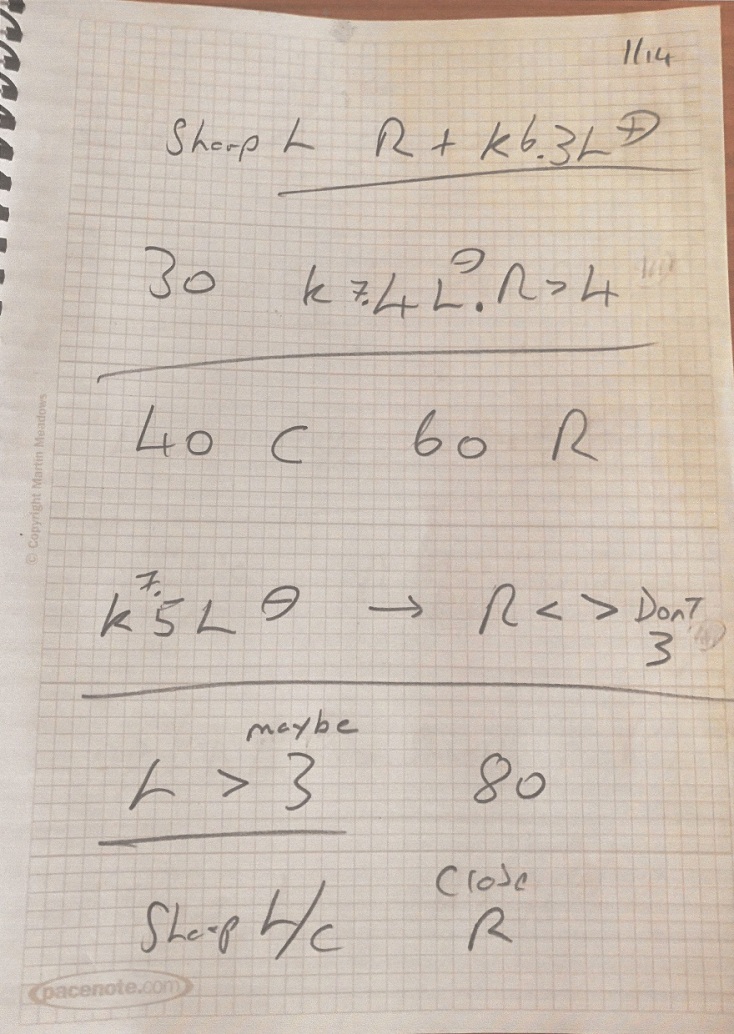 11/14
Sharp L R + k6.3L ⊕
30 k 7.4 L ⊖. R > 4
40 C 60 R
k 7. 5 L ⊖ → R < > Don't 3
maybe
L > 3 80
Close
Sharp L/c R
pacenote.com
© Copyright Martin Meadows